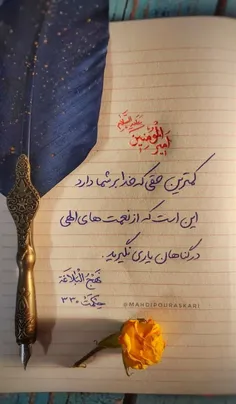 امیرالمؤمنین علیه السلام
کمترین حقی که خدا بر شما دارد
این است که از نعمت های الهی
در گناهان یاری نگیرید.
نهج البلاغة
حکمت ۳۳۰
@MAHDIPOURASKARI